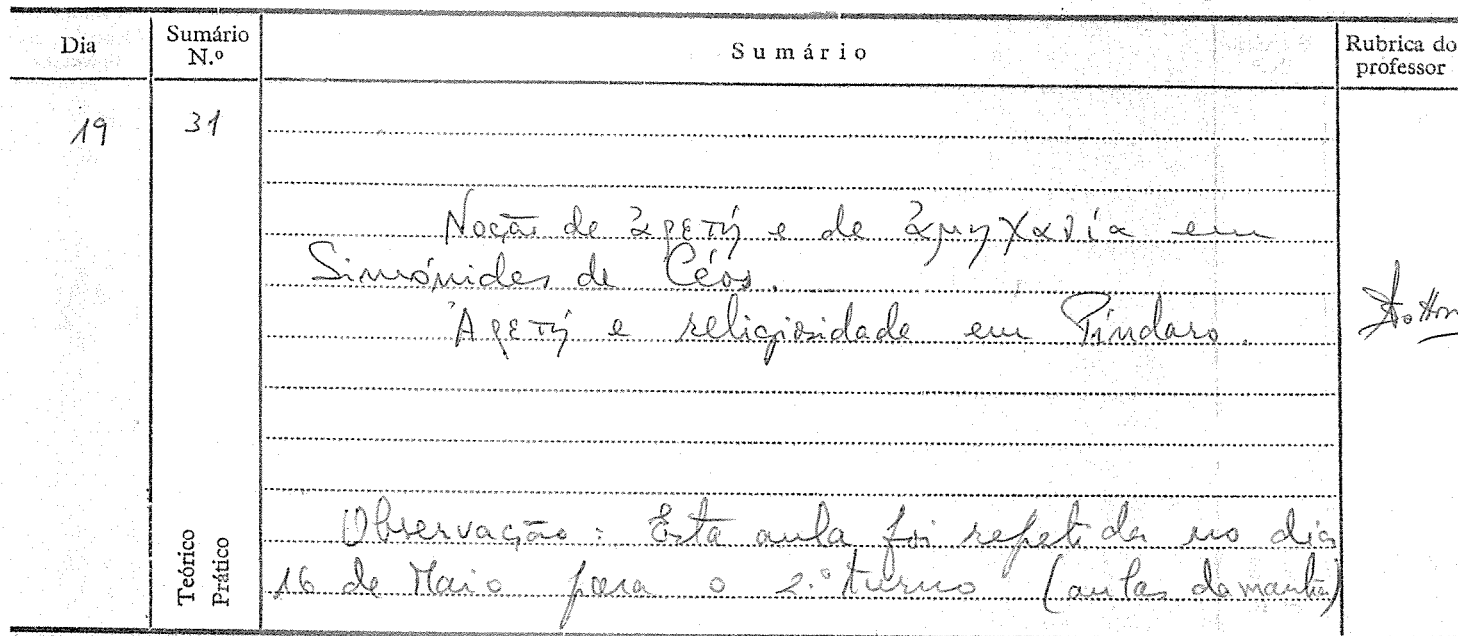 Dia Sumário N.º Sumário Rubrica do professor
19 31
Noção de ἀρετή e de ἀμηχανία em
Simónides de Céos.
Ἀρετή e religiosidade em Píndaro.
Teórico
Prático
Observação: Esta aula foi repetida no dia
16 de Maio para o 2.º turno (aulas da manhã)